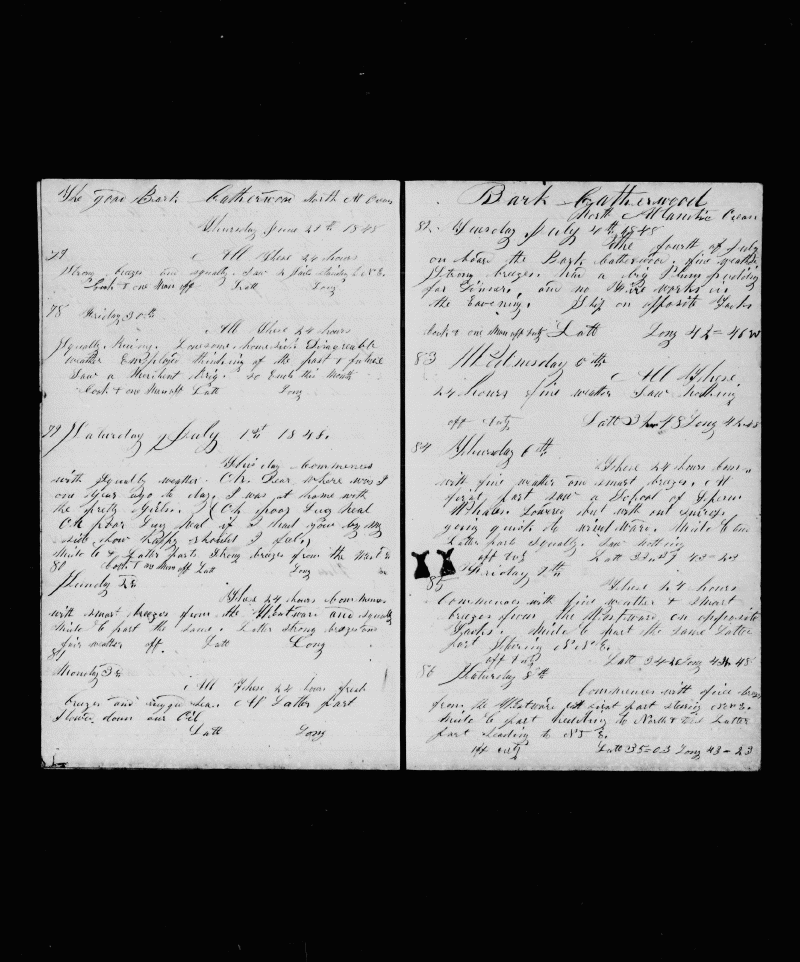 The good Bark Catherwood North At Ocean
Thursday June 29th 1848
79 All these 24 hours
Strong breezes and squally. Saw 2 Sails Steering to N E.
Cook & one Man off Latt Long
78 Friday 30th
All These 24 hours
Squally, Lonesome, homesick. Disagreeable
weather Employed thinking of the past & future
Saw a Merchant Brig. So Ends this Month
Cook & one Man off Latt Long
79 Saturday July 1st 1848.
This day Commences
with Squally weather. Oh Dear where was I
one year ago to day. I was at home with
the pretty Girls.
Oh poor if I had you by my
side how happy should I feel,
Middle & Latter parts Strong breezes from the West
80 Cook & one Man off Latt Long
Sunday 2d
These 24 hours Commences
with smart breezes from the Westward and squally
Middle part the same. Latter strong breezes and
fair weather off. Latt Long
81
Monday 3d
All These 24 hours fresh
breezes and rugged sea. At Latter part
Stowed down our Oil
Latt Long
Bark Catherwood
North Atlantic Ocean
82 Tuesday July 4th 1848
The fourth of July
on board the Bark Catherwood. fine weather
Strong breezes. Had a big Plum pudding
for Dinner, and no Fire works in
the Evening. Ship on opposite Tacks
Cook & one man off duty Latt Long 42=46 W
83 Wednesday 5th
All These
24 hours fine weather Saw nothing
off duty Latt 3 48 Long 42-48
84 Thursday 6th
These 24 hours Com-
with fine weather and smart breezes. At
first part saw a School of Sperm
Whales. Lowered but with out success
going quick to windward. Middle and
Latter part squally. Saw Nothing
off duty Latt 33=37 43-23
85 Friday 7th
These 24 hours
Commences with fine weather & smart
breezes from the Westward on opposite
Tacks. Middle part the same Latter
part Steering N.N.E.
off duty Latt 34 Long 43-48
86 Saturday 8th
Commences with fine breezes
from the Westward first part steering N.N.E.
Middle part heading to North & East Latter
part heading to N E.
off duty Latt 35=03 Long 43=23